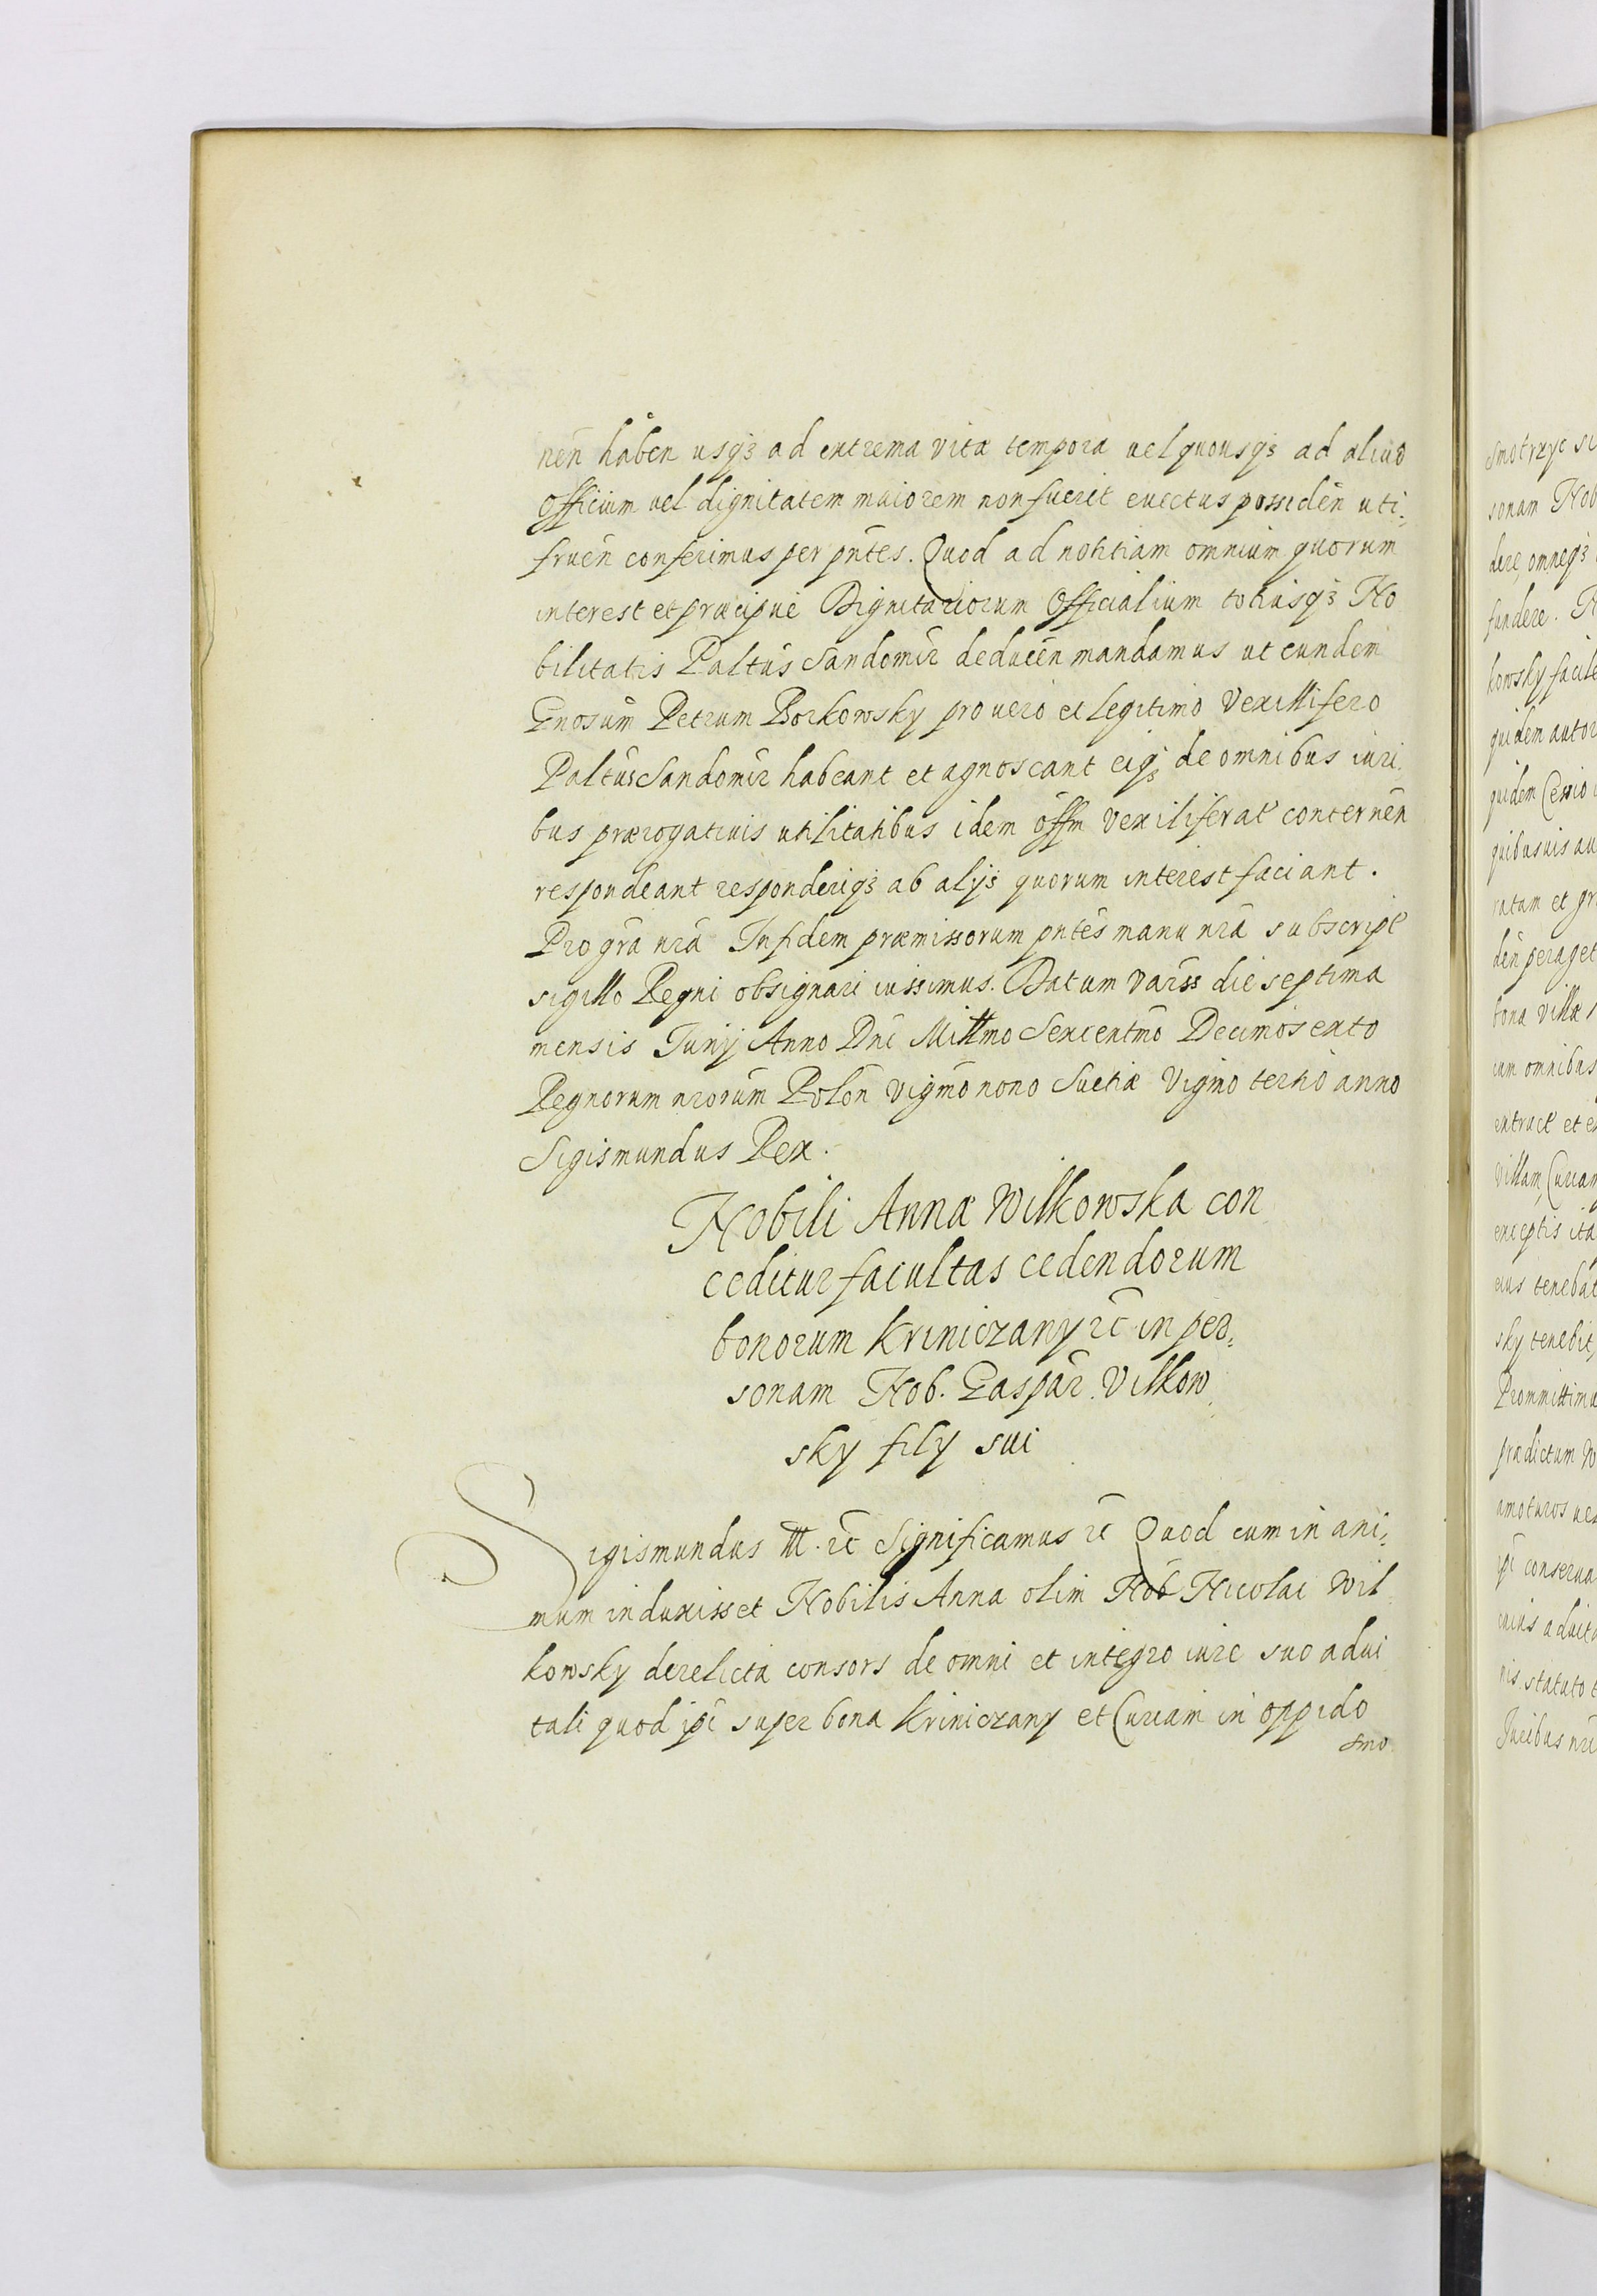 nēn haben usqȝ ad extrema vitæ tempora vel quousqȝ ad aliud
Officium vel dignitatem maiorem non fuerit evectus possidēn uti,
fruēn conferimus per pntes. Quod ad notitiam omnium quorum
interest et præcipue Dignitariorum Officialium totiusqȝ No
bilitatis Paltūs Sandomir deducēn mandamus ut eundem
Gnosum Petrum Borkowsky pro vero et legitimo Vexillifero
Paltūs Sandomir habeant et agnoscant eiqȝ de omnibus iuri
bus prærogativis utilitatibus idem offm Vexiliferat concernēn
respondeant responderiqȝ ab alijs quorum interest faciant.
Pro gra nrā In fidem præmissorum pntes manu nrā subscript
sigillo Regni obsignari iussimus. Datum Varss die septima
mensis Junij Anno Dni Millmo Sexcentmo Decimosexto
Regnorum nrorum Polōn vigmo nono Suetiæ Vigmo tertio anno
Sigismundus Rex.
Nobili Annæ Wilkowska con
ceditur facultas cedendorum
bonorum Kriniczany etc̄ in per,
sonam Nob. Gaspar. Vilkow
sky filÿ sui
Sigismundus III. etc̄ Significamus etc̄ Quod cum in ani,
mum induxisset Nobilis Anna olim Nob Nicolai Wil
kowsky derelicta consors de omni et integro iure suo advi
tali quod ipi super bona Kriniczany et Curiam in oppido
Smo
Smotrzyc
sonam Nob
dere, omneqȝ
fundere.
kowsky facile
quidem autor
quidem Cessio
quibusvis au
ratam et gr
dēn peraget
bona Villæ
cum omnibus
extract et
Villam, Curiam
exceptis ita
eius tenebat
sky tenebit,
Prommittimu
prædictum W
amoturos
ipi conserva
cuius advita
nis statuto
Jucibus